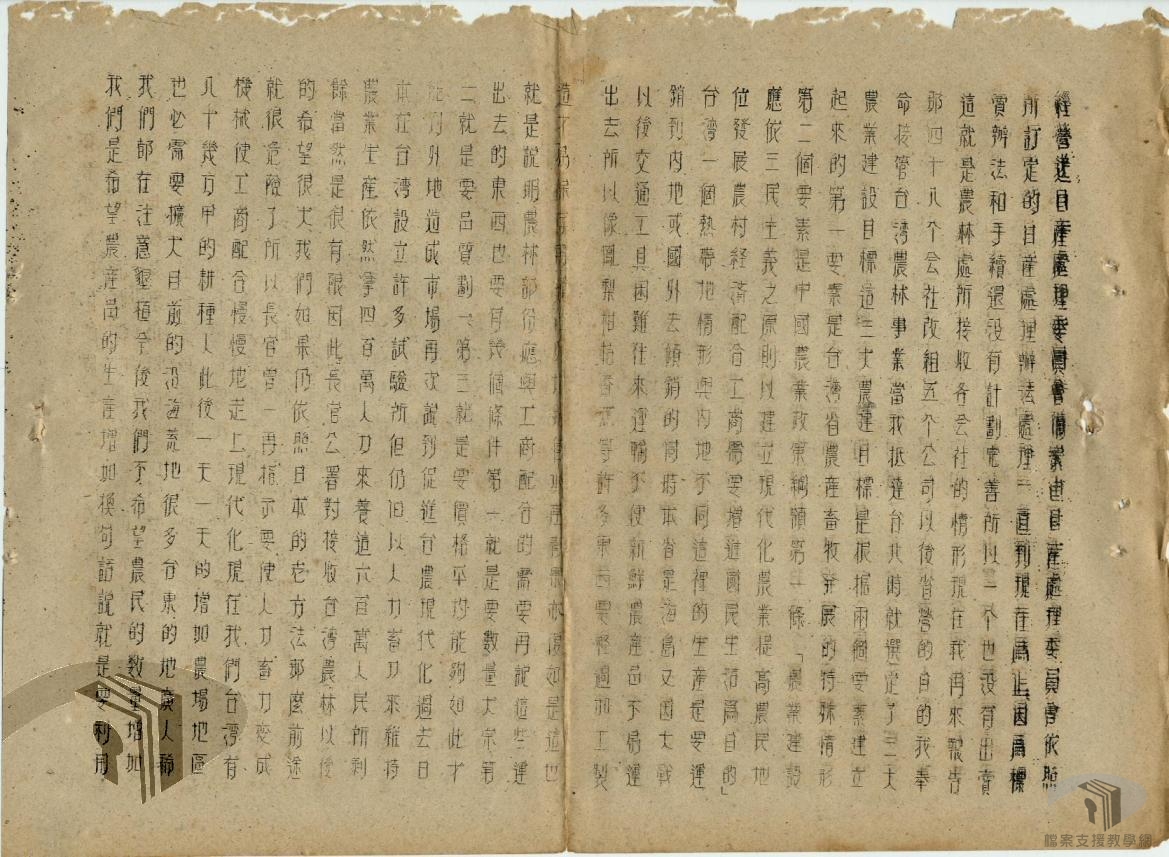 經營送日產處理委員會備案由日產處理委員會依照
所訂定的日產處理辦法處理一直到現在為止因為標
賣辦法和手續還沒有計劃完善所以一个也沒有出賣
這就是農林處所接收各会社的情形現在我再來報告
那四十八个会社改組五个公司以後省營的目的我奉
命接管台湾農林事業當我抵達台北時的就選定了三大
農業建設目標這三大農建目標是根据兩個要素建立
起來的第一要素是台湾省農產畜牧発展的特殊情形
第二個要素是中國農業政策綱領第一條「農業建設
應依三民主義之原則以建立現代化農業提高農民地
位發展農村経済配合工商需要增進國民生活為目的」
台湾一個熱帶地情形與内地不同這裡的生產是要運
銷到内地或國外去傾銷的同時本省是海島又因大戰
以後交通工具困難往來運輸不便新鮮農產品不易運
出去所以像鳳梨柑桔香蕉等許多東西要経過加工製
造才易保存
就是說明農林部份應與工商配合的需要再說這些運
出去的東西也要有幾個條件第一就是要数量大宗第
二就是要品質劃一第三就是要價格平均能夠如此才
能向外地造成市場再次說到促進台農現代化過去日
本在台湾設立許多試驗所但仍但以人力畜力來維持
農業生產依然拿四百萬人力來養這六百萬人民所剩
餘當然是很有限因此長官公署對接收台湾農林以後
的希望很大我們如果仍依照日本的老方法那麼前途
就很危險了所以長官曾一再指示要使人力畜力変成
機械使工商配合慢慢地走上現代化現在我們台湾有
八十幾万甲的耕種人此後一天一天的增加農場地區
也必需要擴大目前的沿海荒地很多台東的地廣人稀
我們都在注意墾植今後我們不希望農民的数量增加
我們是希望農產品的生產增加換句話說就是要利用
檔案支援教學網